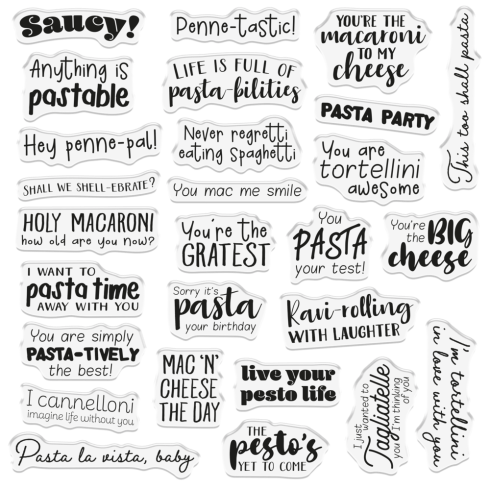 Saucy!
Penne-tastic!
YOU'RE THE
macaroni
TO MY
cheese
This too shall pasta
Anything is
pastable
LIFE IS FULL OF
pasta-bilities
PASTA PARTY
Hey penne-pal!
Never regretti
eating Spaghetti
You are
tortellini
aweSome
SHALL WE SHELL-EBRATE?
You mac me smile
HOLY MACARONI
how old are you now?
You're the
GRATEST
You
PASTA
your test!
You're
the BIG
cheese
I WANT TO
pasta time
AWAY WITH YOU
Sorry it's
pasta
your birthday
Ravi-rolling
WITH LAUGHTER
I'm tortellini
in love with you
You are simply
PASTA-TIVELY
the best!
MAC 'N'
CHEESE
THE DAY
live your
pesto life
I just
wanted to
Tagliatelle
you I'm thinking
of you
I cannelloni
imagine life without you
THE
pesto's
YET TO COME
Pasta la vista, baby